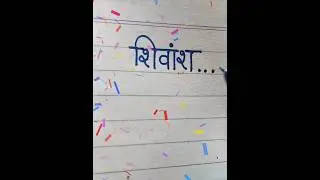 शिवांश...